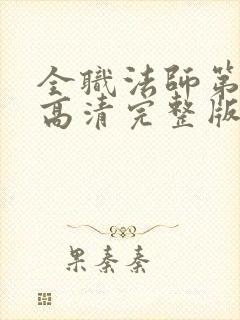 全職法師第
高清完整版
果秦秦